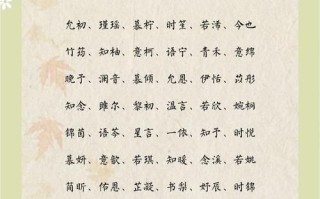 允初、瑾瑶、慕柠、时笙、若浠、今也
竹筠、知柚、意柯、语宁、青禾、意绵
晚予、澜音、慕倾、允恩、伊恬、苡彤
知念、雎尔、黎初、温言、若欣、婉桐
锦茵、语芩、星言、一依、知予、时悦
慕妍、意歆、若琪、知暖、念溪、若姚
简昕、佑恩、芷凝、书梨、妤辰、时锦